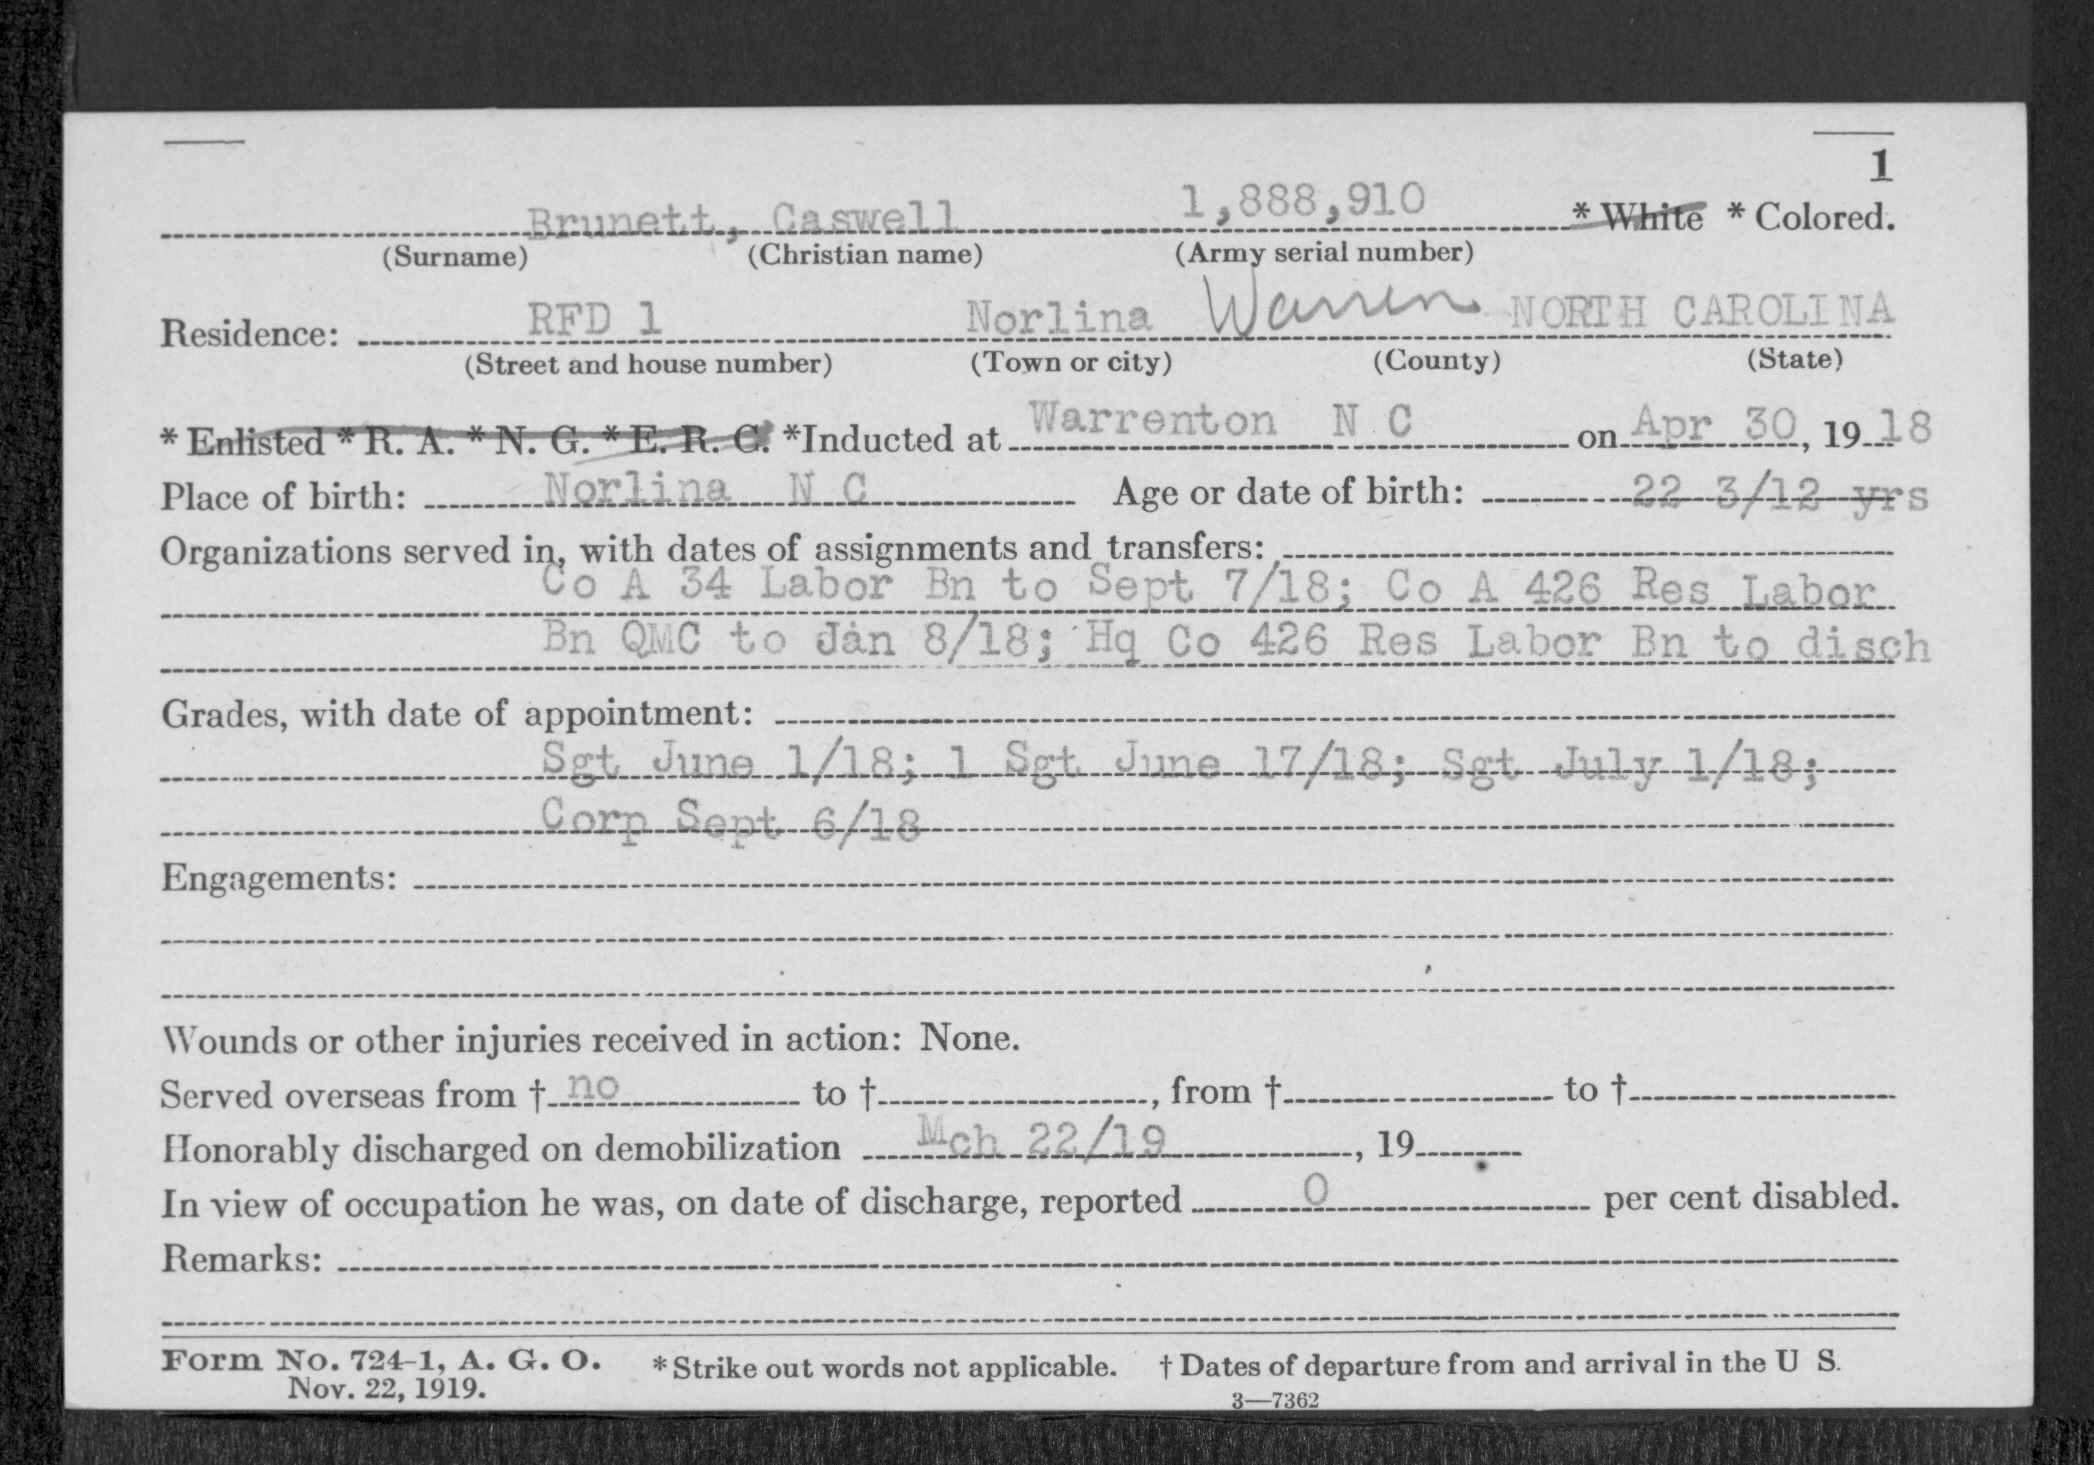 1
Brunett, Caswell 1,888,910 * White * Colored.
(Surname) (Christian name) (Army serial number)
Residence: RFD 1 Norlina Warren NORTH CAROLINA
(Street and house number) (Town or city) (County) (State)
* Enlisted * R. A. * N. G. * E. R. C. *Inducted at Warrenton N C on Apr 30, 19 18
Place of birth: Norlina N C Age or date of birth: 22 3/12 yrs
Organizations served in, with dates of assignments and transfers:
Co A 34 Labor Bn to Sept 7/18; Co A 426 Res Labor
Bn QMC to Jan 8/18; Hq Co 426 Res Labor Bn to disch
Grades, with date of appointment:
Sgt June 1/18; 1 Sgt June 17/18; Sgt July 1/18;
Corp Sept 6/18
Engagements:
Wounds or other injuries received in action: None.
Served overseas from † no to †, from † to †
Honorably discharged on demobilization Mch 22/19, 19
In view of occupation he was, on date of discharge, reported 0 per cent disabled.
Remarks:
Form No. 724-1, A. G. O. * Strike out words not applicable. † Dates of departure from and arrival in the U S.
Nov. 22, 1919.
3—7362